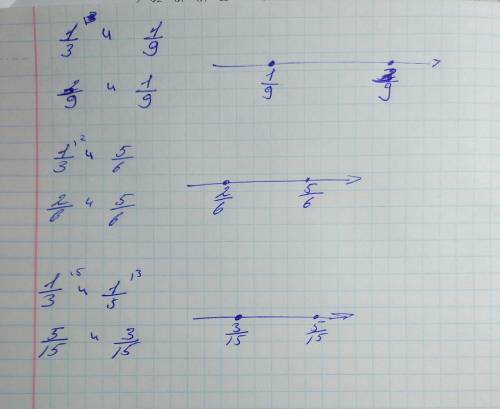 1/3 ·3 и 1/9
3/9 и 1/9
1/9 3/9
1/3 ·2 и 5/6
2/6 и 5/6
2/6 5/6
1/3 ·5 и 1/5 ·3
5/15 и 3/15
3/15 5/15